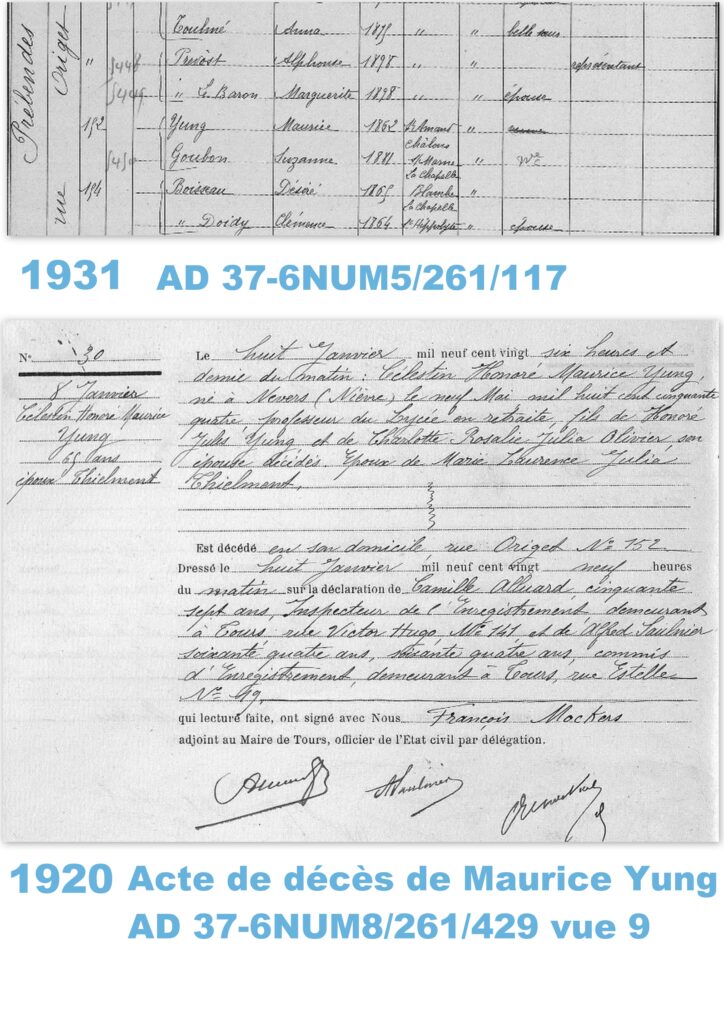 Prébendes
rue Origet
Toulmé Anna 1875 " " belle sœur
" 5448 Prévost Alphonse 1898 " " représentant
5449 " Le Baron Marguerite 1898 " " épouse
152 Yung Maurice 1862 St Amand "
Châlons
5450 Goubon Suzanne 1881 s/ Marne "
La Chapelle
154 Boiseau Désiré 1865 Blanche "
La Chapelle
" Doidy Clémence 1864 St Hippolyte " épouse
1931 AD 37-6NUM5/261/117
N° 30
8 Janvier
Célestin Honoré Maurice
Yung
65 ans
époux Thielment
Le huit Janvier mil neuf cent vingt six heures et
demie du matin : Célestin Honoré Maurice Yung,
né à Nevers (Nièvre) le neuf Mai mil huit cent cinquante
quatre, professeur du Lycée en retraite, fils de Honoré
Jules Yung et de Charlotte Rosalie Julia Olivier, son
épouse décédés. Epoux de Marie Laurence Julia
Thielment,
Est décédé en son domicile rue Origet N° 152
Dressé le huit Janvier mil neuf cent vingt neuf heures
du matin sur la déclaration de Camille Alluard cinquante
sept ans, Inspecteur de l'Enregistrement, demeurant
à Tours rue Victor Hugo, N° 141, et de Alfred Saulnier
soixante quatre ans, soixante quatre ans, commis
d'Enregistrement, demeurant à Tours, rue Estelle
N° 49,
qui lecture faite, ont signé avec Nous François Mockers
adjoint au Maire de Tours, officier de l'Etat civil par délégation.
ASaulnier
1920 Acte de décès de Maurice Yung
AD 37-6NUM8/261/429 vue 9